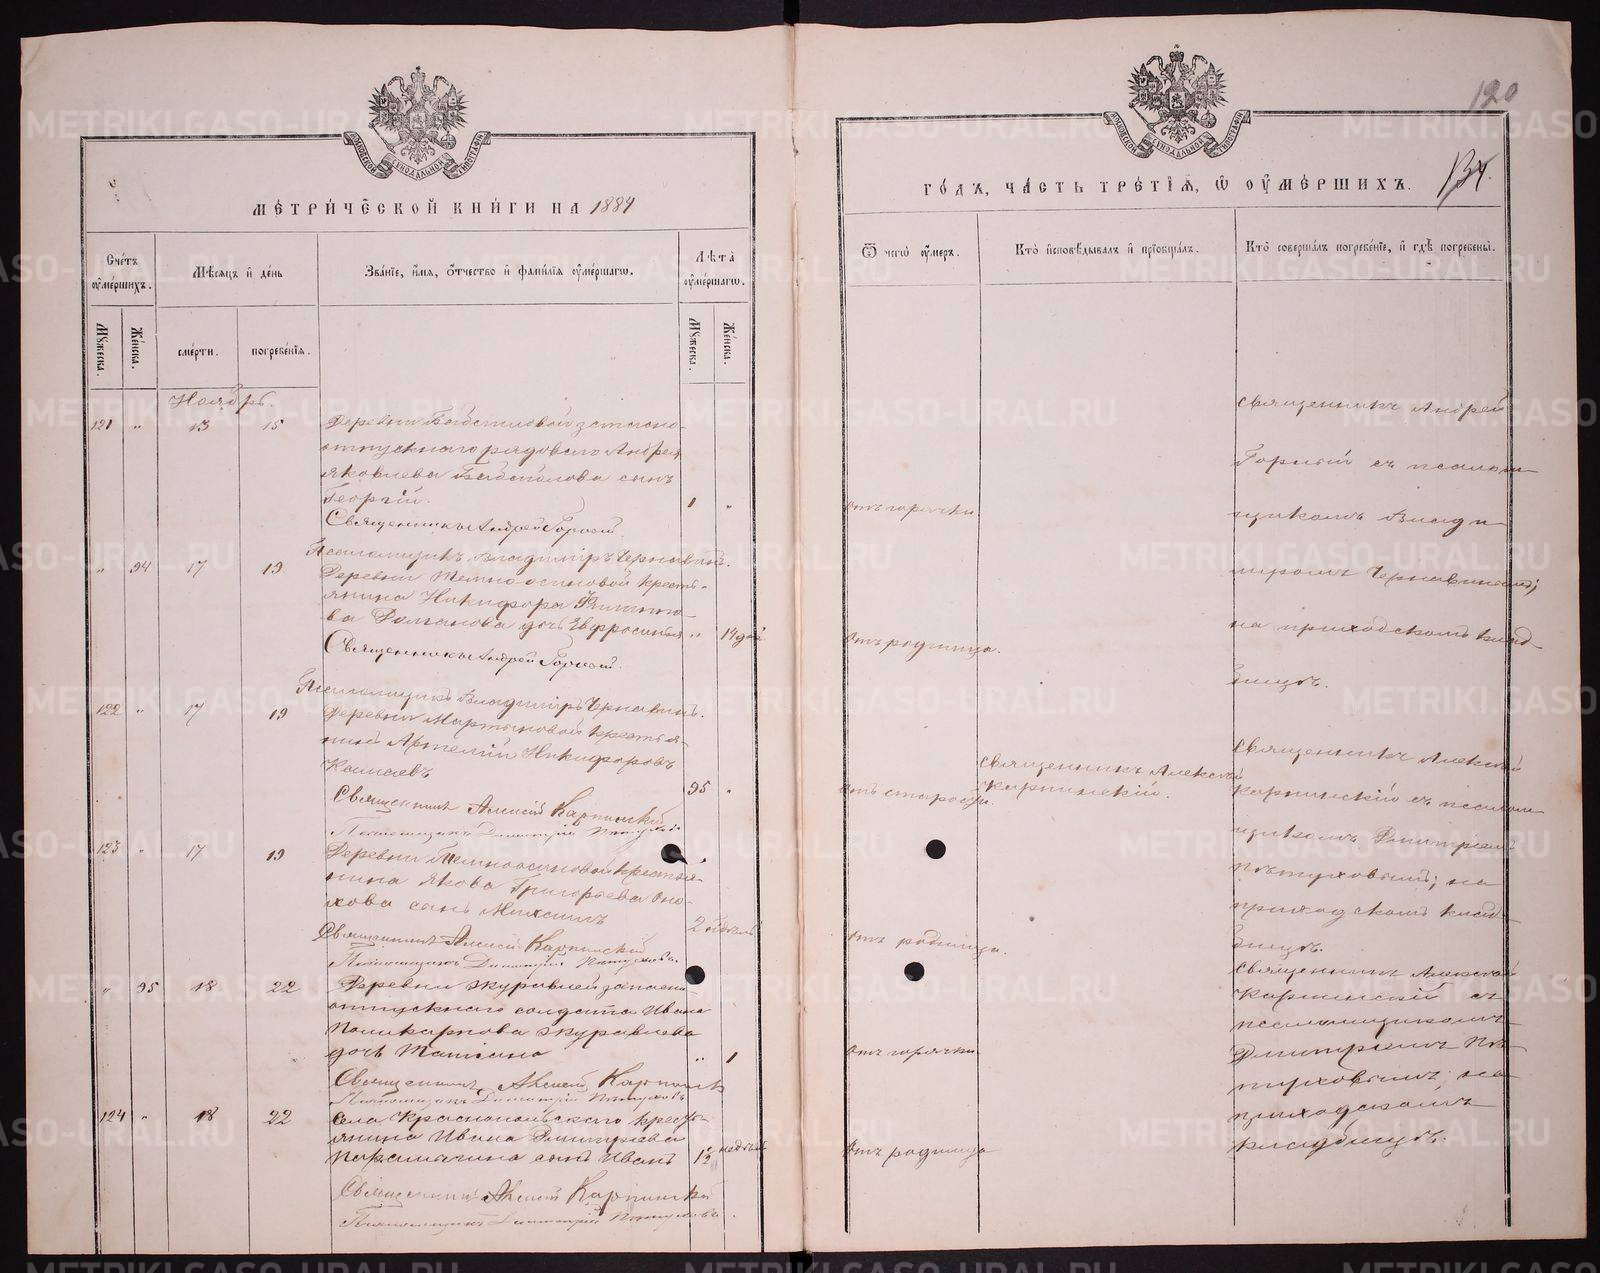 МЕТРИЧЕСКОЙ КНИГИ НА 1884
Счетъ умершихъ.
Мѣсяцъ и день
Званіе, имя, отчество и фамилія умершагѡ.
Лѣта умершагѡ.
Мужеска.
Женска.
смерти.
погребенія.
Мужеска.
Женска.
Ноябрь
121 " 13 15 Деревни
отпускнаго рядоваго Андрея
Яковлева сынъ
Георгій. 1 "
Священникъ Андрей Горный
Псаломщикъ Владиміръ Чернавинъ.
" 94 17 19 Деревни Темноосиновой кресть-
янина Никифора Филиппо-
ва дочь Евфросинья " 14 дней
Священникъ Андрей Горный.
Псаломщикъ Владиміръ Чернавинъ.
122 " 17 19 Деревни Мартыновой крестья-
нинъ Никифоровъ
95 "
Священникъ Алексій Карпинскій
Псаломщикъ Димитрій Пѣтуховъ
123 " 17 19 Деревни Темноосиновой крестья-
нина Якова Григорьева
сынъ 2 недѣль
Священникъ Алексій Карпинскій
Псаломщикъ Димитрій Пѣтуховъ.
" 95 18 22 Деревни Журавлей запасно-
отпускнаго солдата Ивана
Поликарпова Журавлева
дочь Татіана " 1
Священникъ Алексій Карпинскій
Псаломщикъ Димитрій Пѣтуховъ
124 " 18 22 Села Краснопольскаго кресть-
янина Ивана Дмитріева
сынъ Иванъ недѣль
Священникъ Алексій Карпинскій
Псаломщикъ Димитрій Пѣтуховъ.
120
134.
ГОДЪ, ЧАСТЬ ТРЕТІЯ, Ѿ УМЕРШИХЪ.
Ѿ чегѡ умеръ.
Кто исповѣдывалъ и пріобщалъ.
Кто совершалъ погребеніе, и гдѣ погребены.
Отъ горячки.
Священникъ Андрей
Горный съ псалом-
щикомъ Влади-
миромъ Чернавинымъ;
на приходскомъ клад-
бищѣ.
Отъ родимца.
Отъ старости.
Священникъ Алексій
Карпинскій.
Священникъ Алексій
Карпинскій съ псалом-
щикомъ Дмитріемъ
Пѣтуховымъ; на
приходскомъ клад-
бищѣ.
Отъ родимца.
Отъ горячки.
Священникъ Алексій
Карпинскій съ
псаломщикомъ
Дмитріемъ Пѣ-
туховымъ; на
приходскомъ
кладбищѣ.
Отъ родимца
METRIKI.GASO-URAL.RU